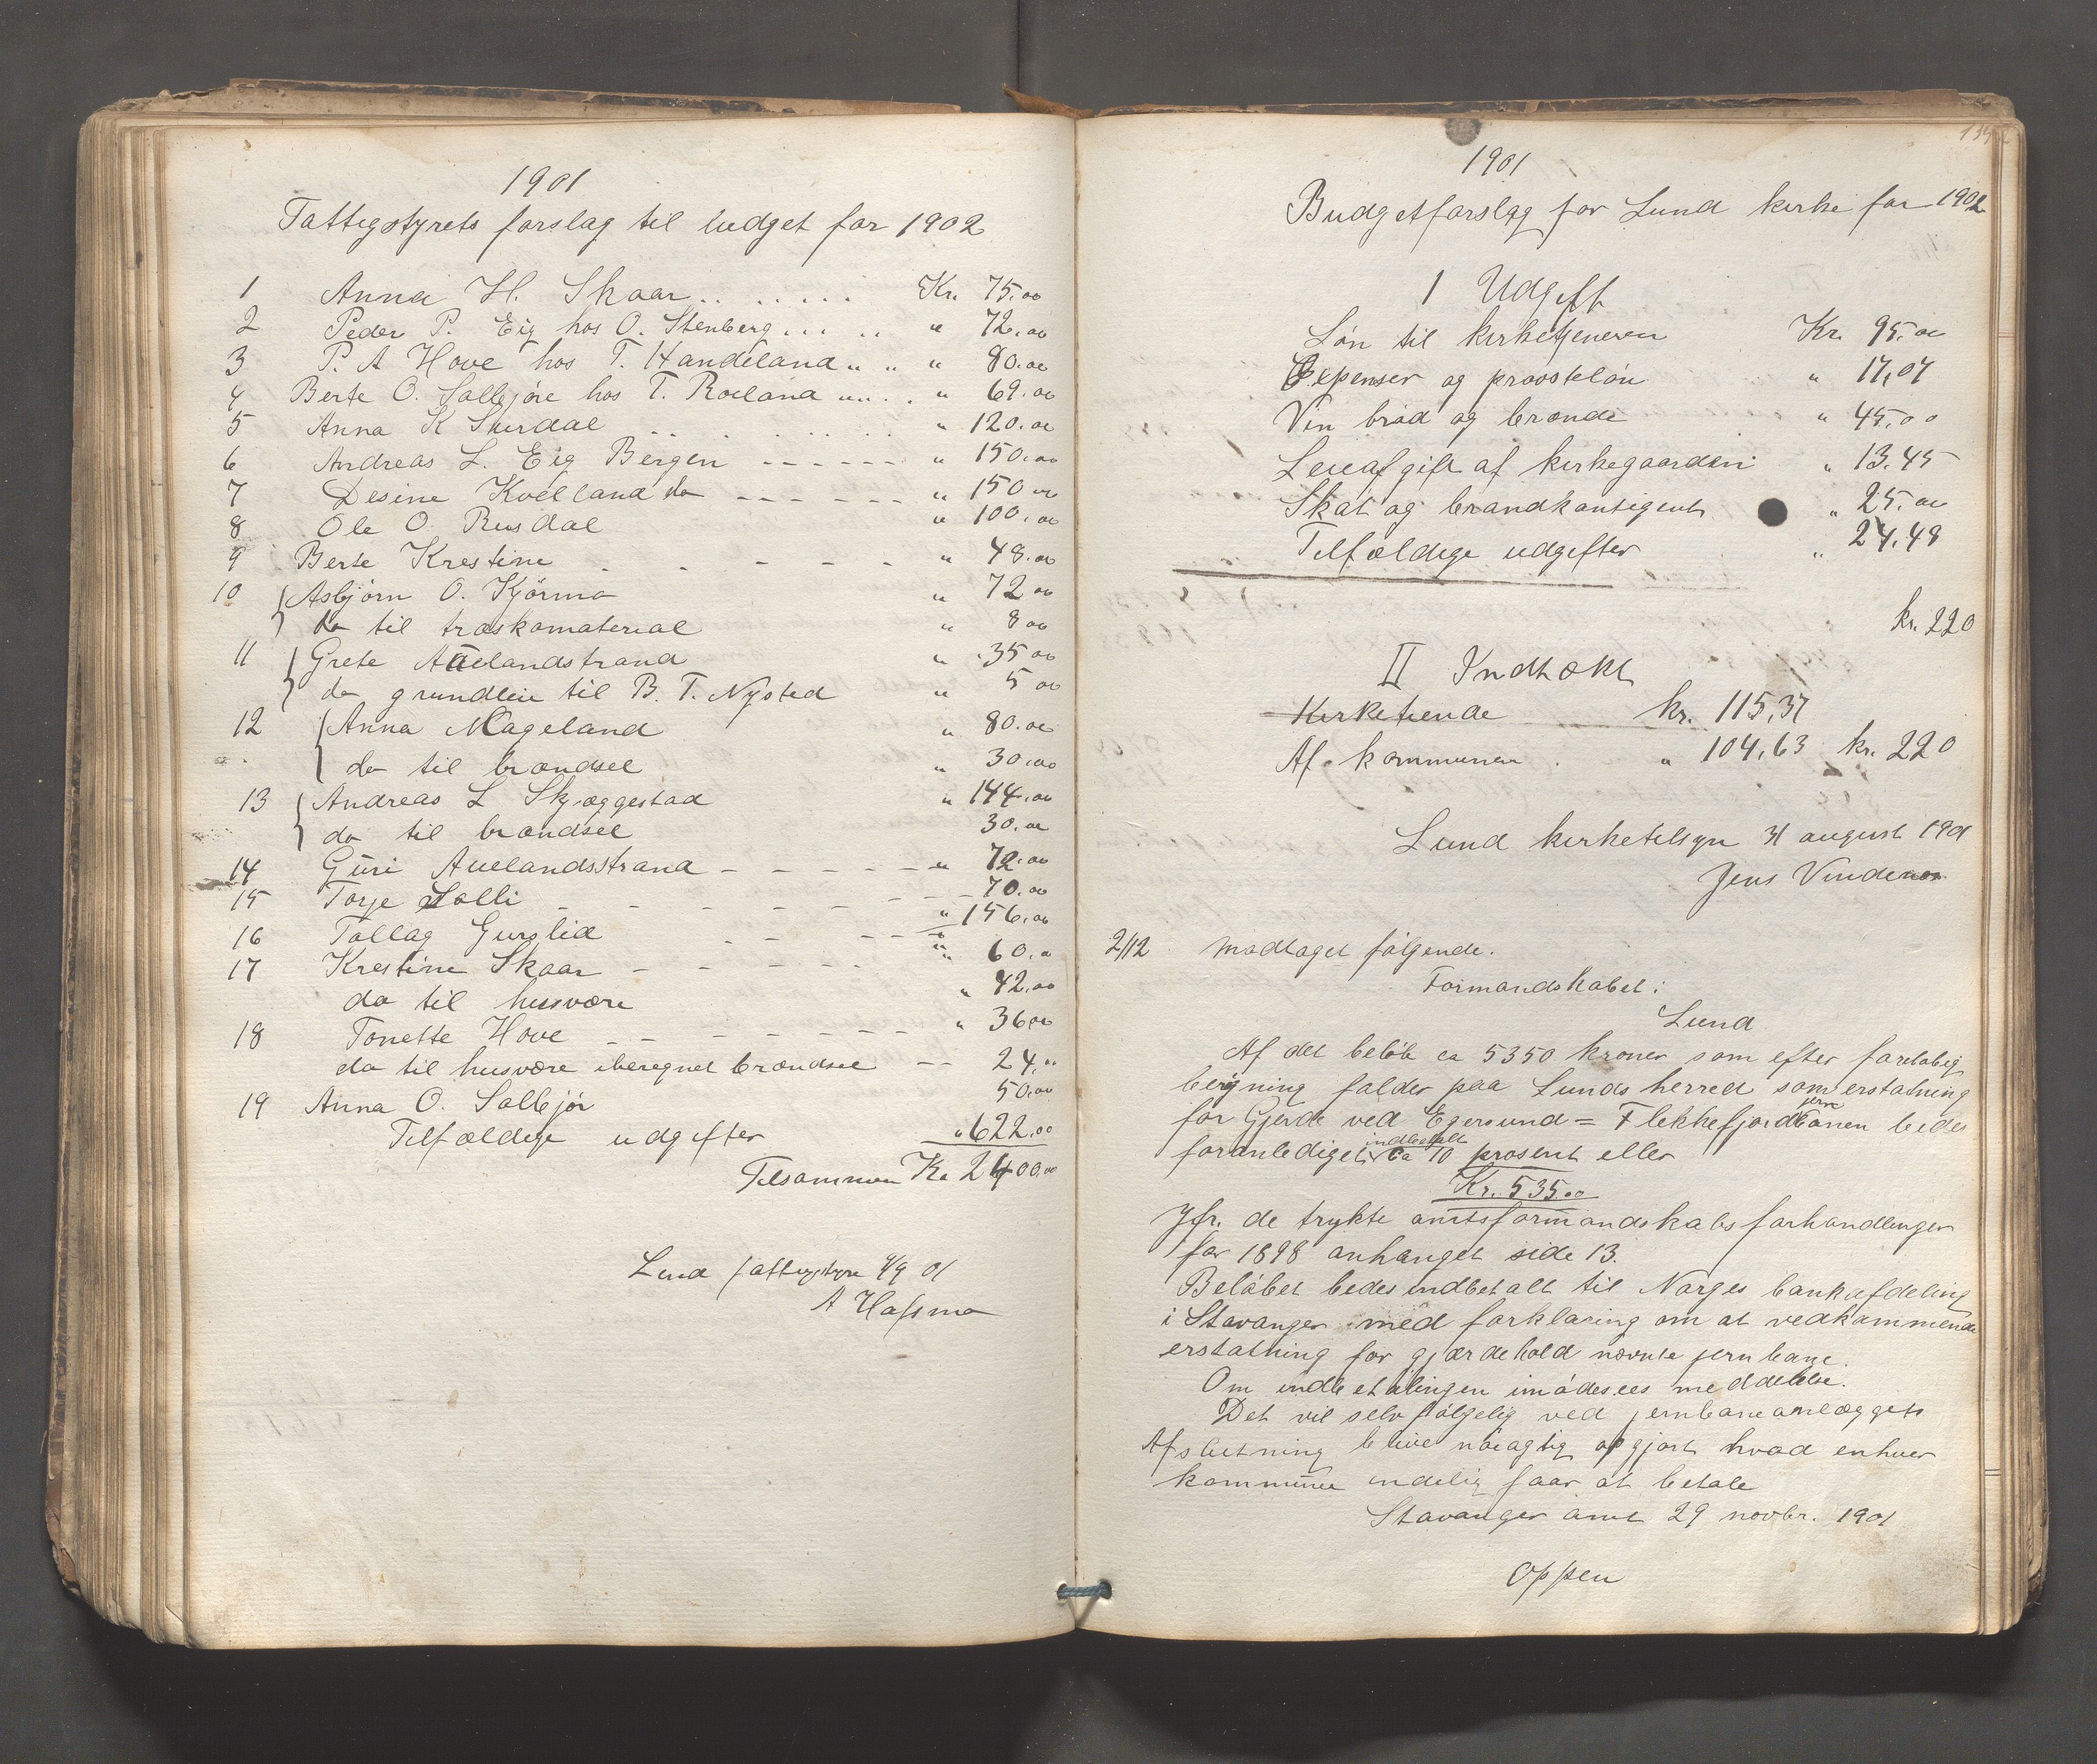 1901
Fattigstyrets forslag til budget for 1902
1 Anna H. Skaar .. ..... Kr. 75.00
2 Peder P. Eig hos O. Stenberg ... .. " 72.00
3 P. A Hove hos T. Handeland " " " 80.00
4 Berte O. Sallejøre hos T. Roeland " " . " 69.00
5 Anna K Surdal .. . . . . . . . " 120.00
6 Andreas L. Eig Bergen - - - - - - " 150.00
7 Desine Kvelland do - - - - - - " 150 00
8 Ole O. Rusdal " 100.00
9 Berte Krestine . - - - - - " 48.00
10 Asbjørn O. Kjørmo " 72 00
do til træskomaterial " 8 00
11 Grete Aaelandstrand " 35 00
do grundleie til B. T. Nysted " 5 00
12 Anna Mageland " 80.00
do til brændsel " 30.00
13 Andreas L Skjæggestad " 144.00
do til brændsel 30.00
14 Guri Auelandsstrand - - - - - " 72.00
15 Torje Salli - - - - - - - - 70.00
16 Tallag Gurslid . - - - - " 156.00
17 Krestine Skaar - - - - - " 60.0
do til husvære " 42.00
18 Tonette Hove - - - - - - - " 36 00
do til husvære iberegnet brændsel - - 24."
19 Anna O. Sallejør 50.00
Tilfældige udgifter " 622.00
Tilsammen Kr 2400.00
Lund fattigstyre 4/9 01
A Hafsmo
1901
Budgetforslag for Lund kirke for 1902
I Udgift
Løn til kirketjeneren Kr. 95.00
Expenser og proosteløn " 17,07
Vin brød og brænde " 45,00
Leieafgift af kirkegaarden " 13.45
Skat og brandkontigent " 25.00
Tilfældige udgifter " 24.48
kr. 220
II Indtækt
Kirketiende kr. 115,37
Af kommunen . " 104,63 kr. 220
Lund kirketilsyn 31 august 1901
Jens Vindenes
2/12 Modtaget følgende.
Formandskabet i
Lund
Af det beløb ca 5350 kroner som efter foreløbig
beregning falder paa Lunds herred som erstatning
for Gjerde ved Egersund = Flekkefjord jernbanen bedes
foranlediget indbetalt ca 10 prosent eller
Kr. 535.00
Jfr. de trykte amtsformandskabsforhandlinger
for 1898 anhanget side 13.
Beløbet bedes indbetalt til Norges bankafdeling
i Stavanger med forklaring om at vedkommende
erstatning for gjærdehold nævnte jernbane.
Om indbetalingen imødesees meddelelse.
Det vil selvfølgelig ved jernbaneanlæggets
Afslutning blive nøiagtig opgjort hvad enhver
kommune endelig faar at betale
Stavanger amt 29 novbr. 1901
Oppen